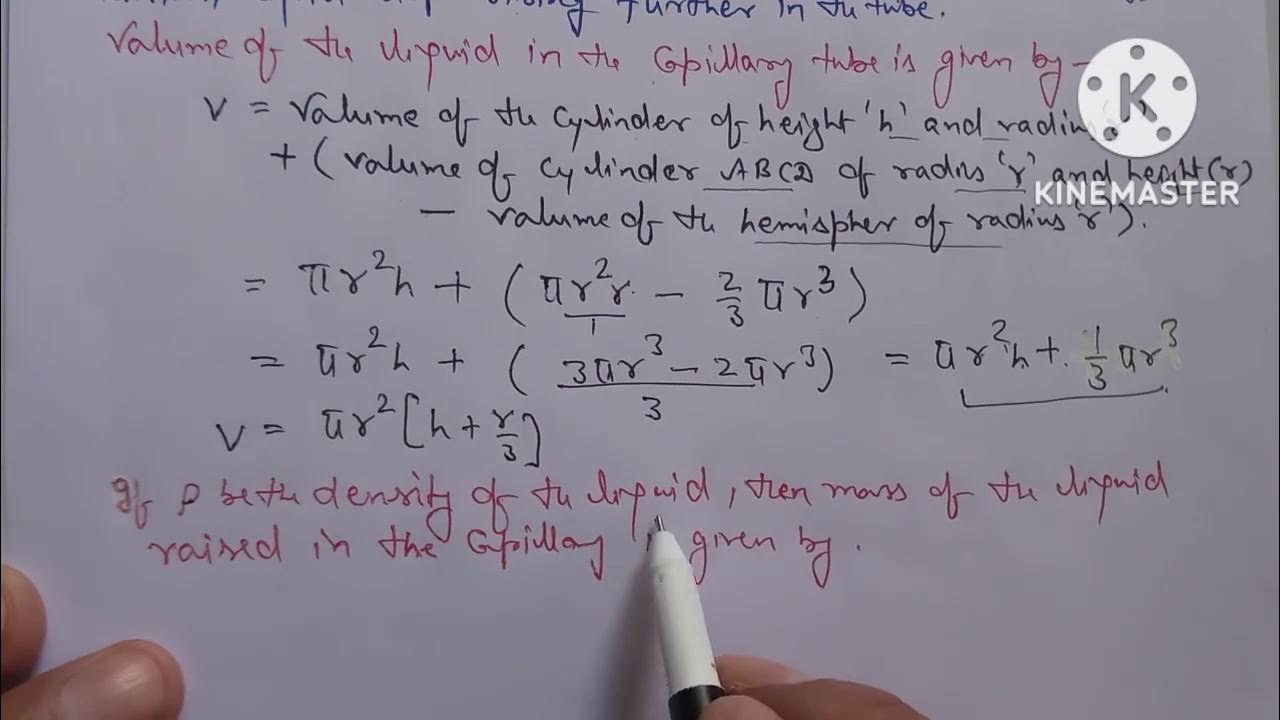 further in the tube.
Valume of the liquid in the Capillary tube is given by -
V = Valume of the Cylinder of height 'h' and radius
+ (valume of Cylinder ABCD of radius 'r' and height (r)
- valume of the hemispher of radius 'r').
= πr²h + (πr²r - 2/3 πr³)
= πr²h + (3πr³ - 2πr³)/3 = πr²h + 1/3 πr³
V = πr²[h + r/3]
If ρ be the density of the liquid, then mass of the liquid
raised in the Capillary given by.
K
KINEMASTER